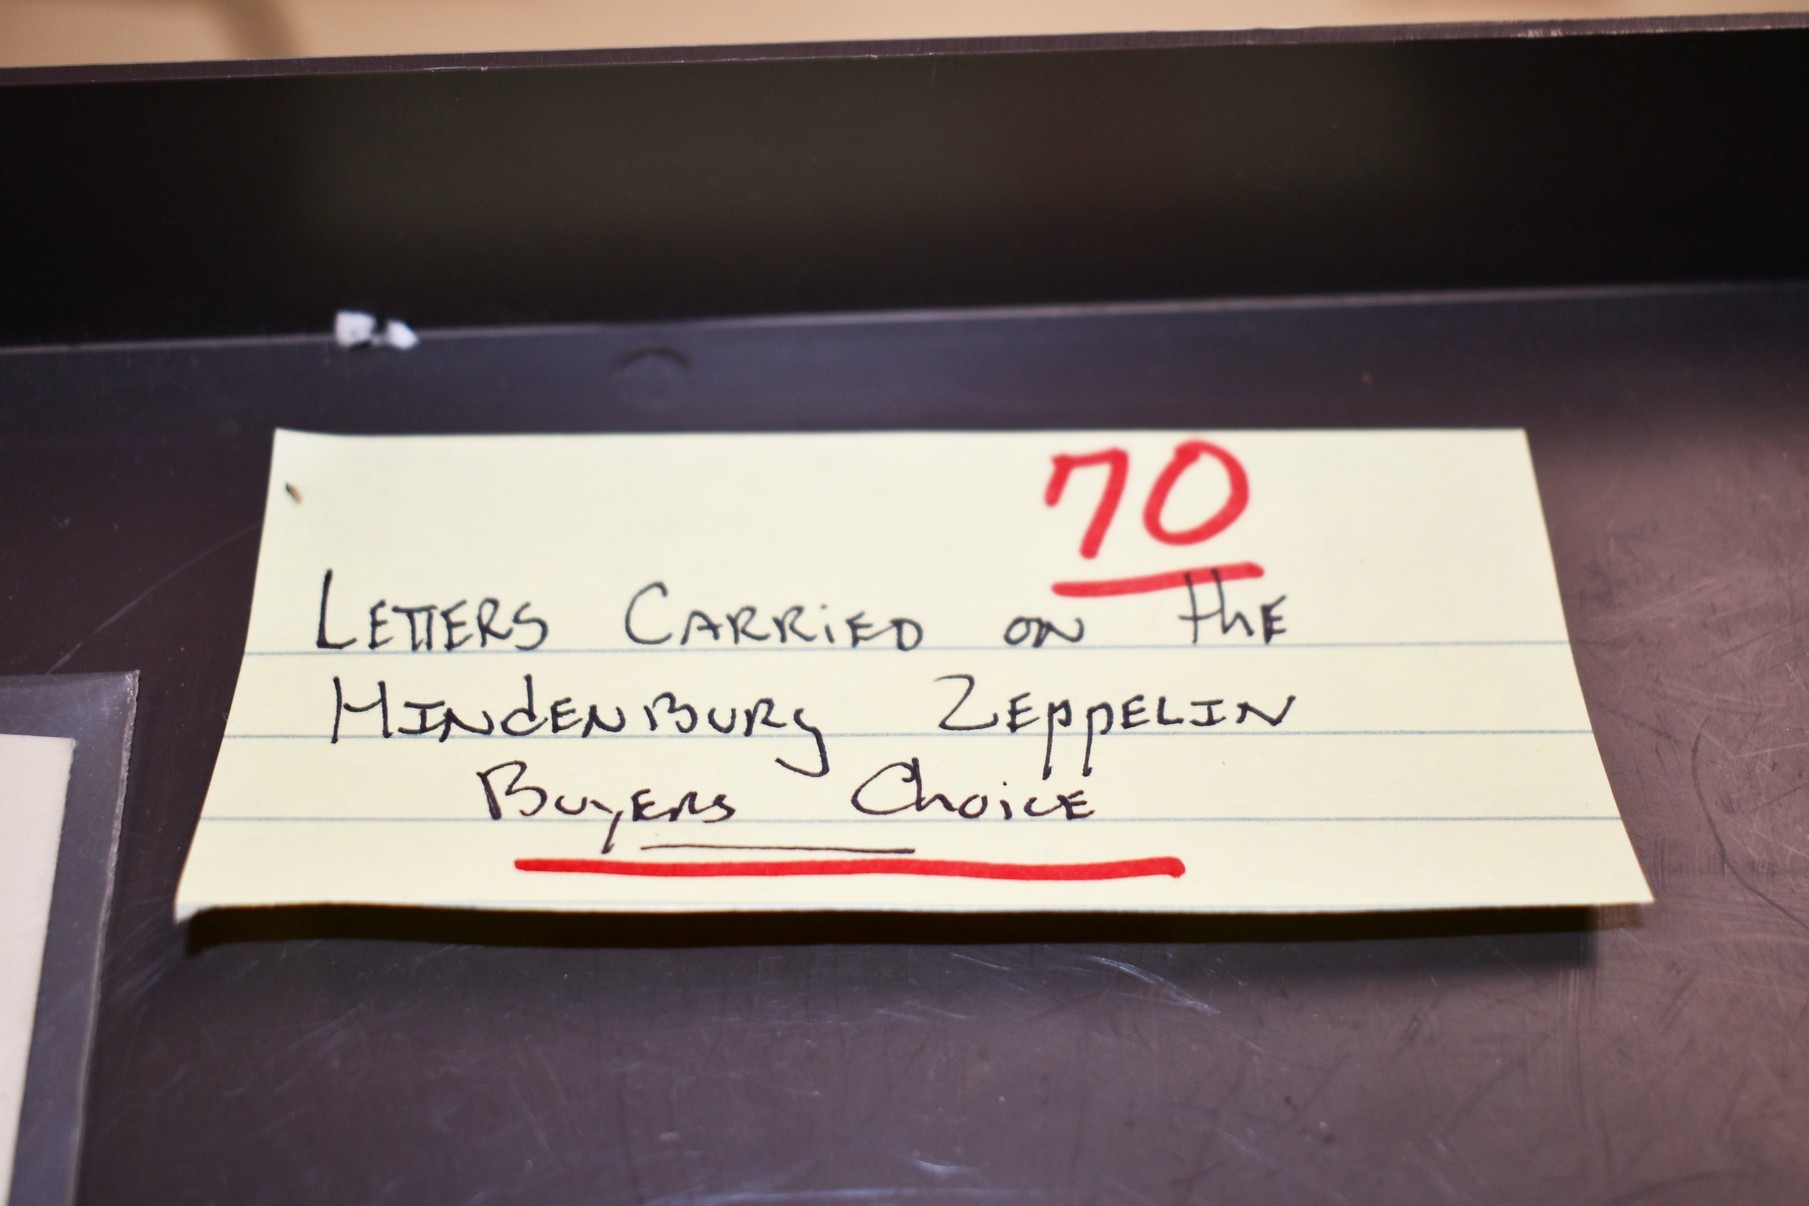 70
Letters Carried on the
Hindenburg Zeppelin
Buyers Choice